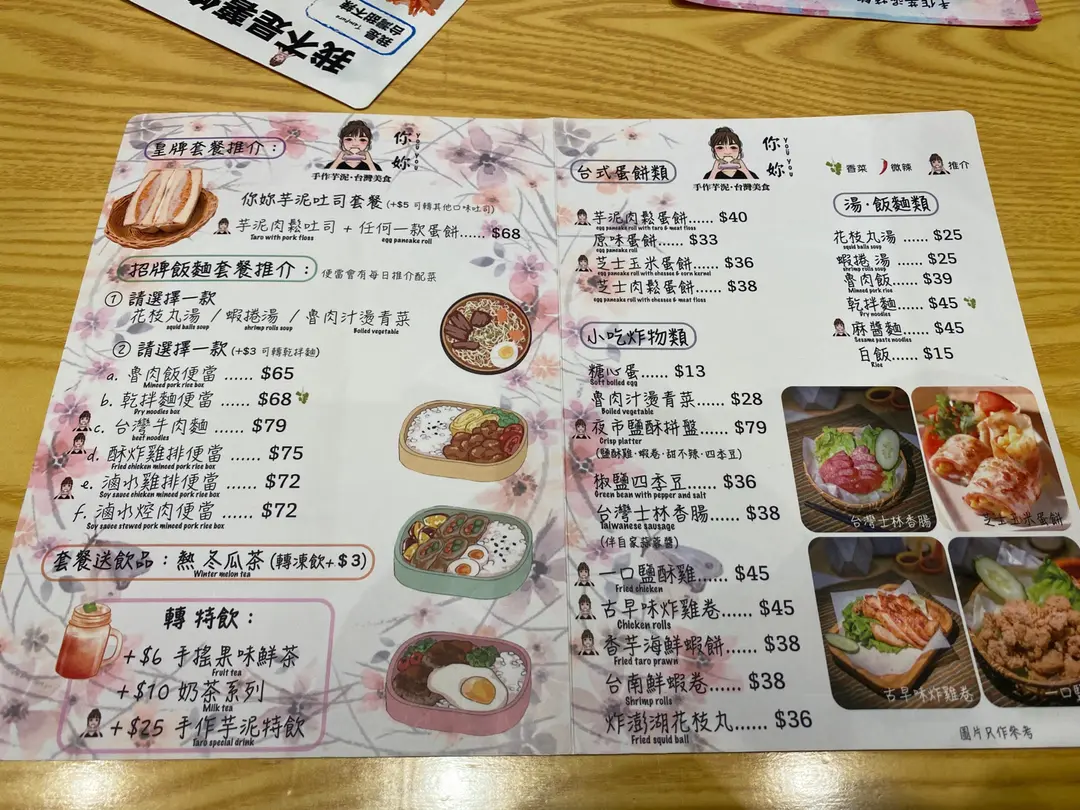 我不是薯條
我是 Tempura
台灣甜不辣
皇牌套餐推介：
你妳
you you
手作芋泥·台灣美食
你妳芋泥吐司套餐 (+$5 可轉其他口味吐司)
芋泥肉鬆吐司 + 任何一款蛋餅...... $68
Taro with pork floss egg pancake roll
招牌飯麵套餐推介： 便當會有每日推介配菜
① 請選擇一款
花枝丸湯 / 蝦捲湯 / 魯肉汁燙青菜
squid balls soup shrimp rolls soup Boiled vegetable
② 請選擇一款 (+$3 可轉乾拌麵)
a. 魯肉飯便當 ...... $65
Minced pork rice box
b. 乾拌麵便當 ...... $68
Dry noodles box
c. 台灣牛肉麵 ...... $79
beef noodles
d. 酥炸雞排便當 ...... $75
Fried chicken minced pork rice box
e. 滷水雞排便當 ...... $72
Soy sauce chicken minced pork rice box
f. 滷水焢肉便當 ...... $72
Soy sauce stewed pork minced pork rice box
套餐送飲品：熱 冬瓜茶 (轉凍飲+$3)
Winter melon tea
轉 特飲：
+$6 手搖果味鮮茶
Fruit tea
+$10 奶茶系列
Milk tea
+$25 手作芋泥特飲
Taro special drink
台式蛋餅類
你妳
you you
手作芋泥·台灣美食
香菜 微辣 推介
芋泥肉鬆蛋餅...... $40
egg pancake roll with taro & meat floss
原味蛋餅...... $33
egg pancake roll
芝士玉米蛋餅...... $36
egg pancake roll with cheesee & corn kernel
芝士肉鬆蛋餅...... $38
egg pancake roll with cheesee & meat floss
小吃炸物類
糖心蛋...... $13
Soft boiled egg
魯肉汁燙青菜...... $28
Boiled vegetable
夜市鹽酥拼盤...... $79
Crisp platter
(鹽酥雞·蝦卷·甜不辣·四季豆)
椒鹽四季豆...... $36
Green bean with pepper and salt
台灣士林香腸...... $38
Taiwanese sausage
(伴自家蒜蓉醬)
一口鹽酥雞...... $45
Fried chicken
古早味炸雞卷...... $45
Chicken rolls
香芋海鮮蝦餅...... $38
Fried taro prawn
台南鮮蝦卷...... $38
Shrimp rolls
炸澎湖花枝丸...... $36
Fried squid ball
湯·飯麵類
花枝丸湯 ...... $25
squid balls soup
蝦捲 湯 ...... $25
shrimp rolls soup
魯肉飯...... $39
Minced pork rice
乾拌麵...... $45
Dry noodles
麻醬麵...... $45
Sesame paste noodles
白飯...... $15
Rice
台灣士林香腸
芝士玉米蛋餅
古早味炸雞卷
一口
圖片只作參考